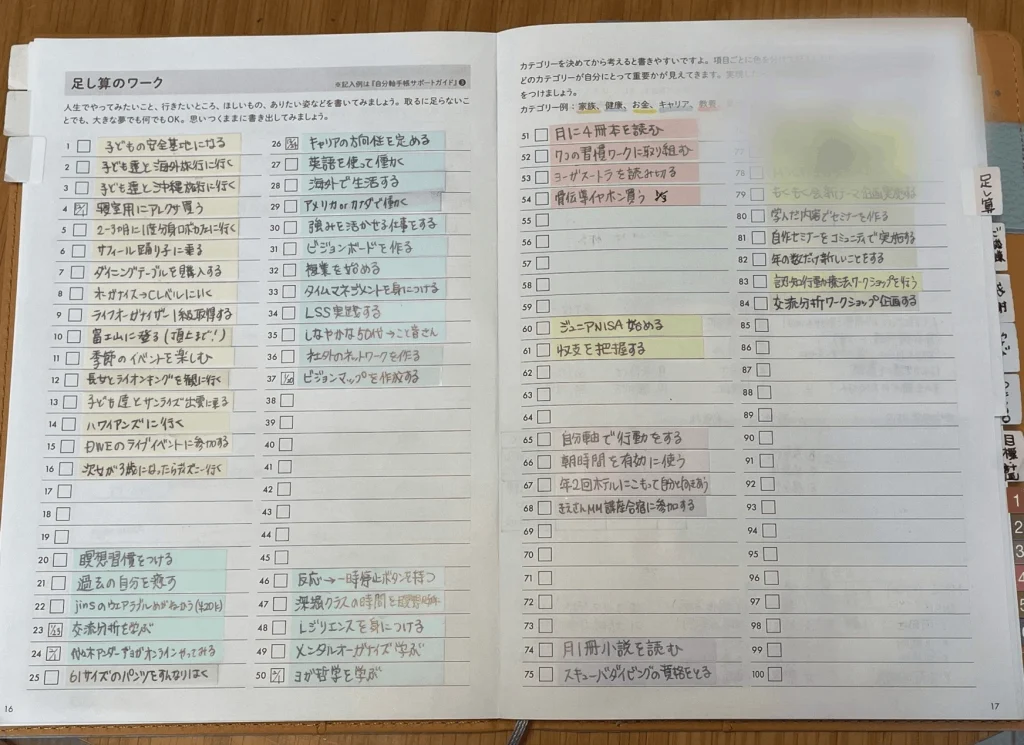 足し算のワーク
※記入例は『自分軸手帳サポートガイド』❸
人生でやってみたいこと、行きたいところ、ほしいもの、ありたい姿などを書いてみましょう。取るに足らないこ
とでも、大きな夢でも何でもOK。思いつくままに書き出してみましょう。
1 子どもの安全基地になる
2 子ども達と海外旅行に行く
3 子ども達と沖縄旅行に行く
4 寝室用にアレクサ買う
5 2〜3か月に1度
6 サフィール踊り子に乗る
7 ダイニングテーブルを購入する
8 オーガナイズ→Cレベルにいく
9 ライフオーガナイザー1級取得する
10 富士山に登る(頂上まで!)
11 季節のイベントを楽しむ
12 長女とライオンキングを観に行く
13 子ども達とサンライズ出雲に乗る
14 ハワイアンズに行く
15 DWEのライブイベントに参加する
16 次女が3歳になったらディズニー行く
17
18
19
20 瞑想習慣をつける
21 過去の自分を癒す
22 jinsのウェアラブルめがね
23 交流分析を学ぶ
24 オンラインやってみる
25 61サイズのパンツをすんなりはく
26 キャリアの方向性を定める
27 英語を使って働く
28 海外で生活する
29 アメリカorカナダで働く
30 強みを活かせる仕事をする
31 ビジョンボードを作る
32 複業を始める
33 タイムマネジメントを身につける
34 LSS実践する
35 しなやかな50代
36 社外のネットワークを作る
37 ビジョンマップを作成する
38
39
40
41
42
43
44
45
46 反応→一時停止ボタンを持つ
47 深堀クラスの時間を
48 レジリエンスを身につける
49 メンタルオーガナイズ学ぶ
50 ヨガ哲学を学ぶ
16
カテゴリーを決めてから考えると書きやすいですよ。項目ごとに
どのカテゴリーが自分にとって重要かが見えてきます。
をつけましょう。
カテゴリー例:家族、健康、お金、キャリア、教養
51 月に4冊本を読む
52 7つの習慣ワークに取り組む
53 ヨーガスートラを読み切る
54 骨伝導イヤホン買う
55
56
57
58
59
60 ジュニアNISA始める
61 収支を把握する
62
63
64
65 自分軸で行動をする
66 朝時間を有効に使う
67 年2回ホテルにこもって自分と向き合う
68 さえさんMM講座合宿に参加する
69
70
71
72
73
74 月1冊小説を読む
75 スキューバダイビングの資格をとる
78
79 もくもく会
80 学んだ内容でセミナーを作る
81 自作セミナーをコミュニティで実施する
82 年の数だけ新しいことをする
83 認知行動療法ワークショップを行う
84 交流分析ワークショップ企画する
85
86
87
88
89
90
91
92
93
94
95
96
97
98
99
100
17
足し算
目標計画
1
2
3
4